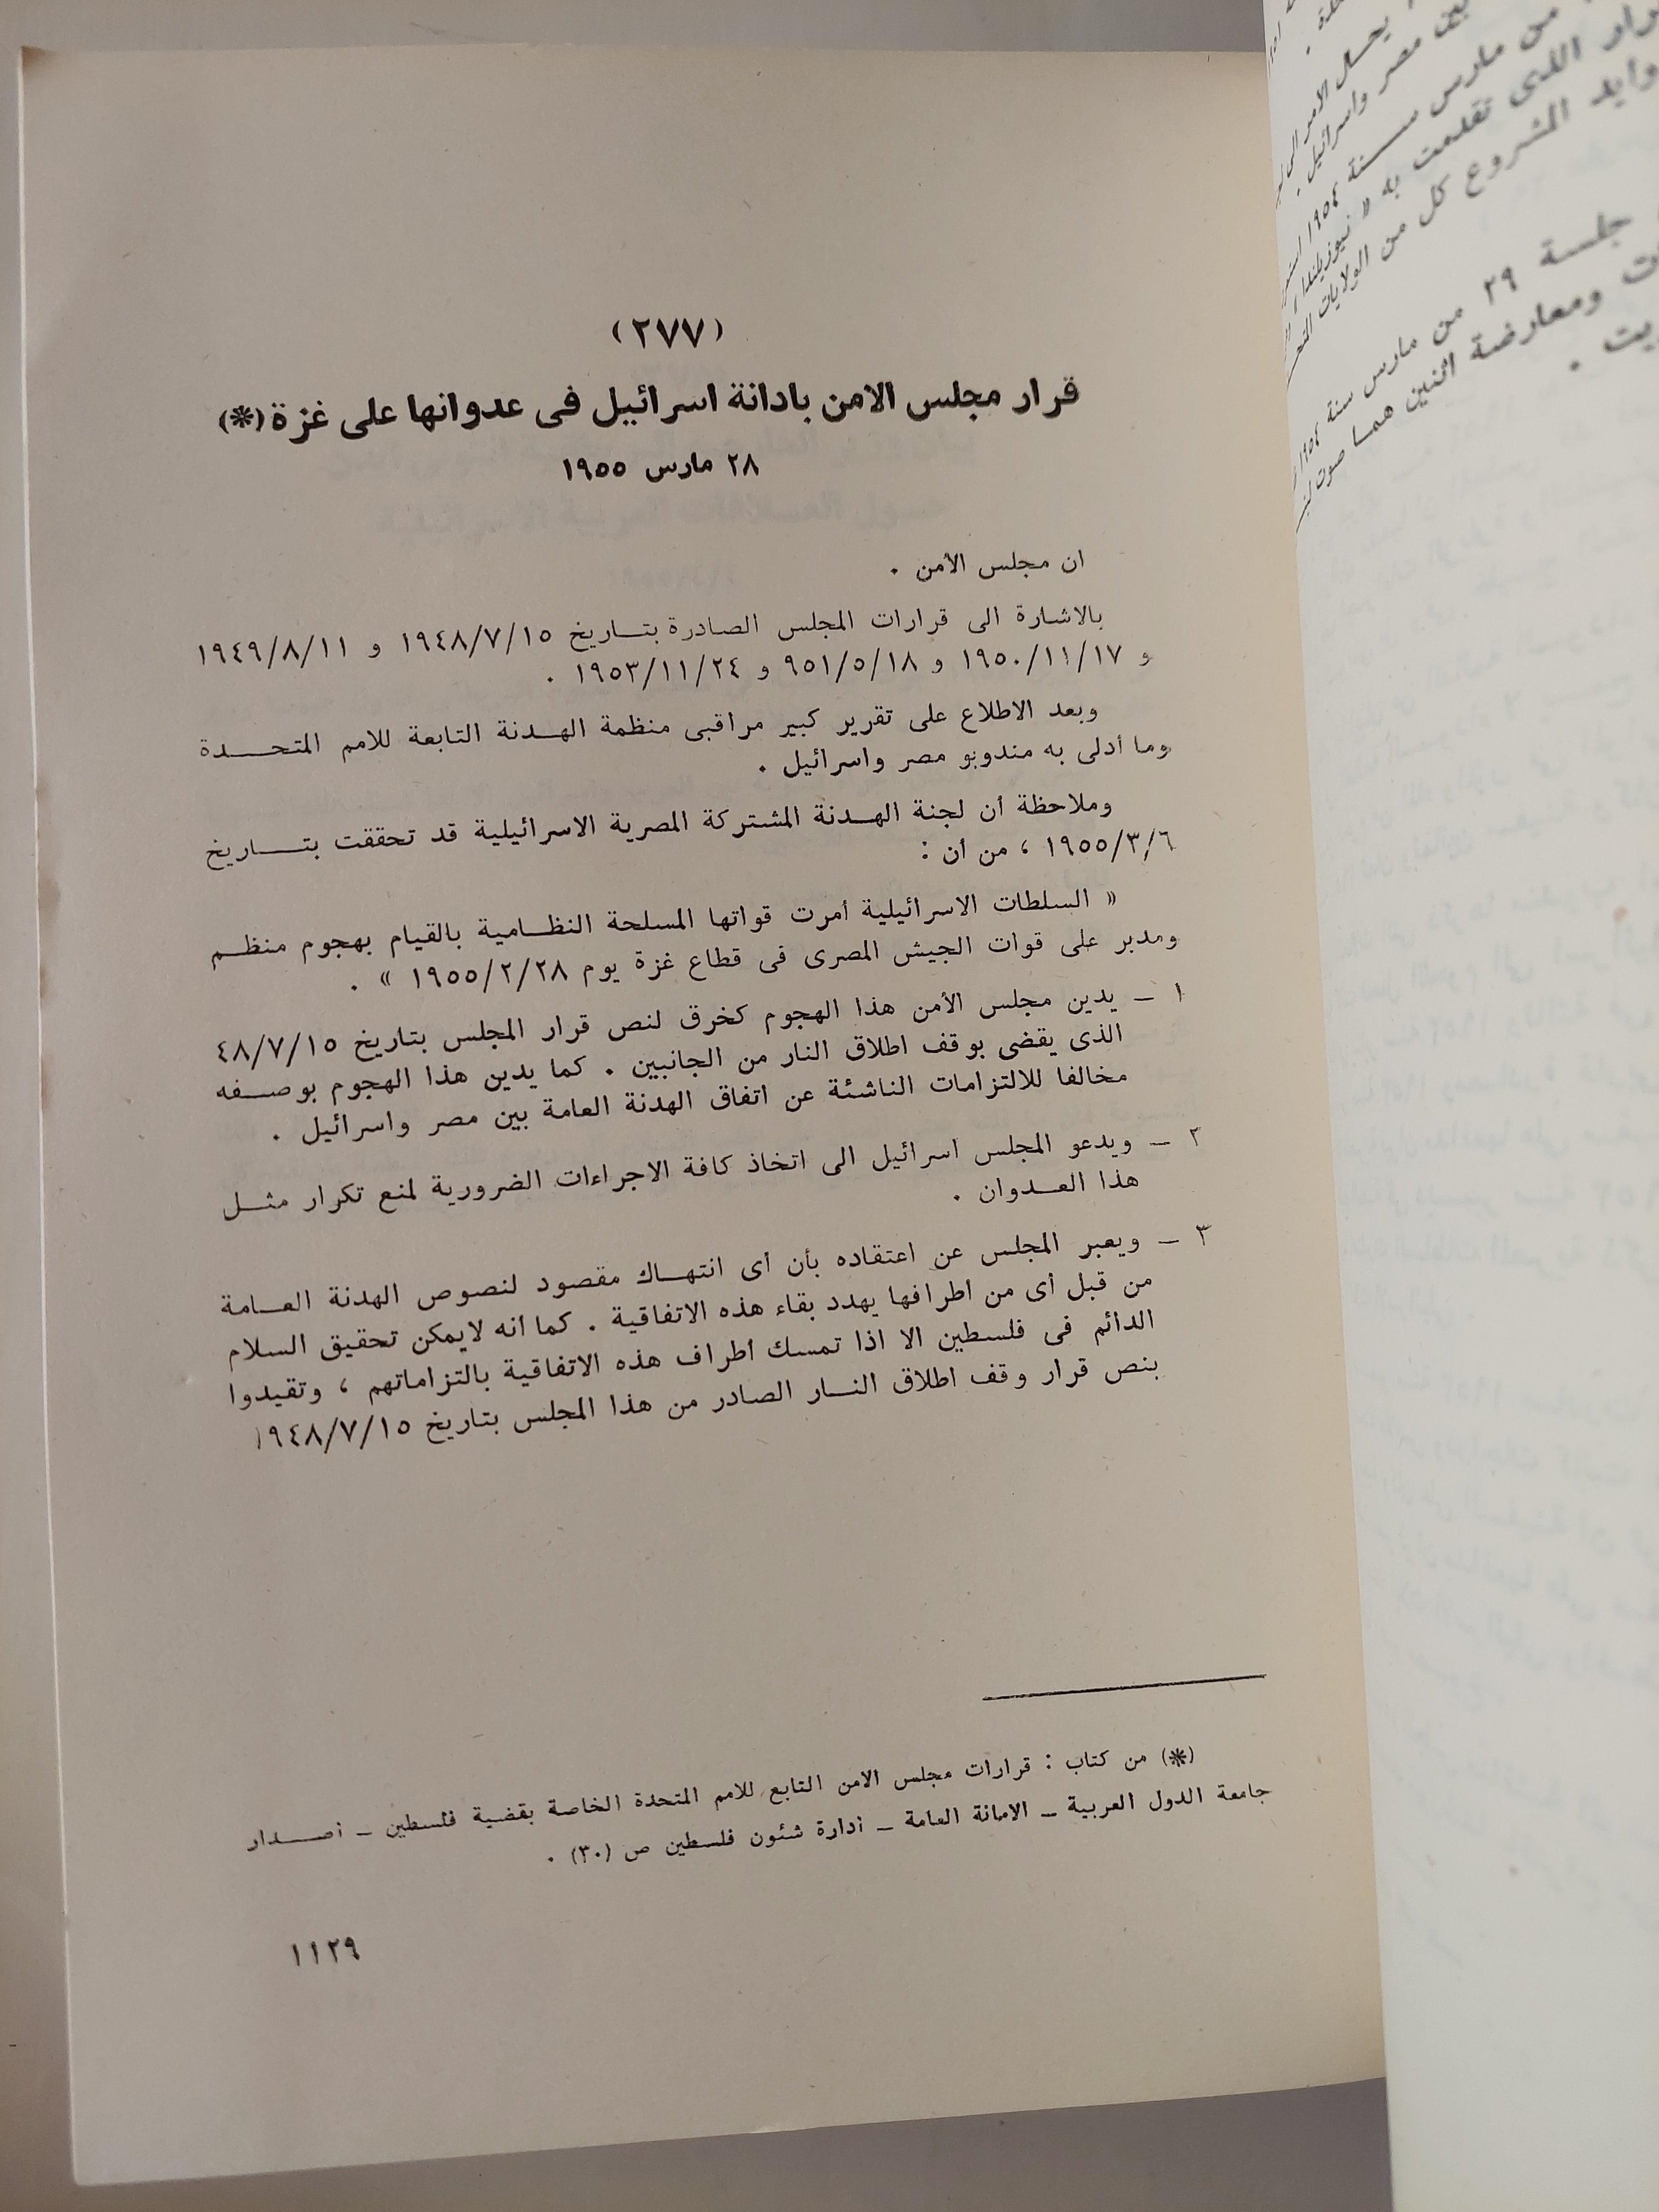 (٢٧٧)
قرار مجلس الامن بادانة اسرائيل فى عدوانها على غزة (*)
٢٨ مارس ١٩٥٥
ان مجلس الأمن .
بالاشارة الى قرارات المجلس الصادرة بتاريخ ١٩٤٨/٧/١٥ و ١٩٤٩/٨/١١
و ١٩٥٠/١١/١٧ و ٩٥١/٥/١٨ و ١٩٥٣/١١/٢٤ .
وبعد الاطلاع على تقرير كبير مراقبى منظمة الهدنة التابعة للامم المتحدة
وما أدلى به مندوبو مصر واسرائيل .
وملاحظة أن لجنة الهدنة المشتركة المصرية الاسرائيلية قد تحققت بتاريخ
١٩٥٥/٣/٦ ، من أن :
« السلطات الاسرائيلية أمرت قواتها المسلحة النظامية بالقيام بهجوم منظم
ومدبر على قوات الجيش المصرى فى قطاع غزة يوم ١٩٥٥/٢/٢٨ » .
١ — يدين مجلس الأمن هذا الهجوم كخرق لنص قرار المجلس بتاريخ ٤٨/٧/١٥
الذى يقضى بوقف اطلاق النار من الجانبين . كما يدين هذا الهجوم بوصفه
مخالفا للالتزامات الناشئة عن اتفاق الهدنة العامة بين مصر واسرائيل .
٢ — ويدعو المجلس اسرائيل الى اتخاذ كافة الاجراءات الضرورية لمنع تكرار مثل
هذا العدوان .
٣ — ويعبر المجلس عن اعتقاده بأن أى انتهاك مقصود لنصوص الهدنة العامة
من قبل أى من أطرافها يهدد بقاء هذه الاتفاقية . كما أنه لايمكن تحقيق السلام
الدائم فى فلسطين الا اذا تمسك أطراف هذه الاتفاقية بالتزاماتهم ، وتقيدوا
بنص قرار وقف اطلاق النار الصادر من هذا المجلس بتاريخ ١٩٤٨/٧/١٥
(*) من كتاب : قرارات مجلس الامن التابع للامم المتحدة الخاصة بقضية فلسطين — اصدار
جامعة الدول العربية — الامانة العامة — ادارة شئون فلسطين ص (٣٠) .
١١٢٩
يحل الامر الى
بين مصر واسرائيل .
من مارس سنة ١٩٥٤
الذى تقدمت به « نيوزيلندا
وايد المشروع كل من الولايات
جلسة ٢٩ من مارس سنة
ومعارضة اثنين هما صوت